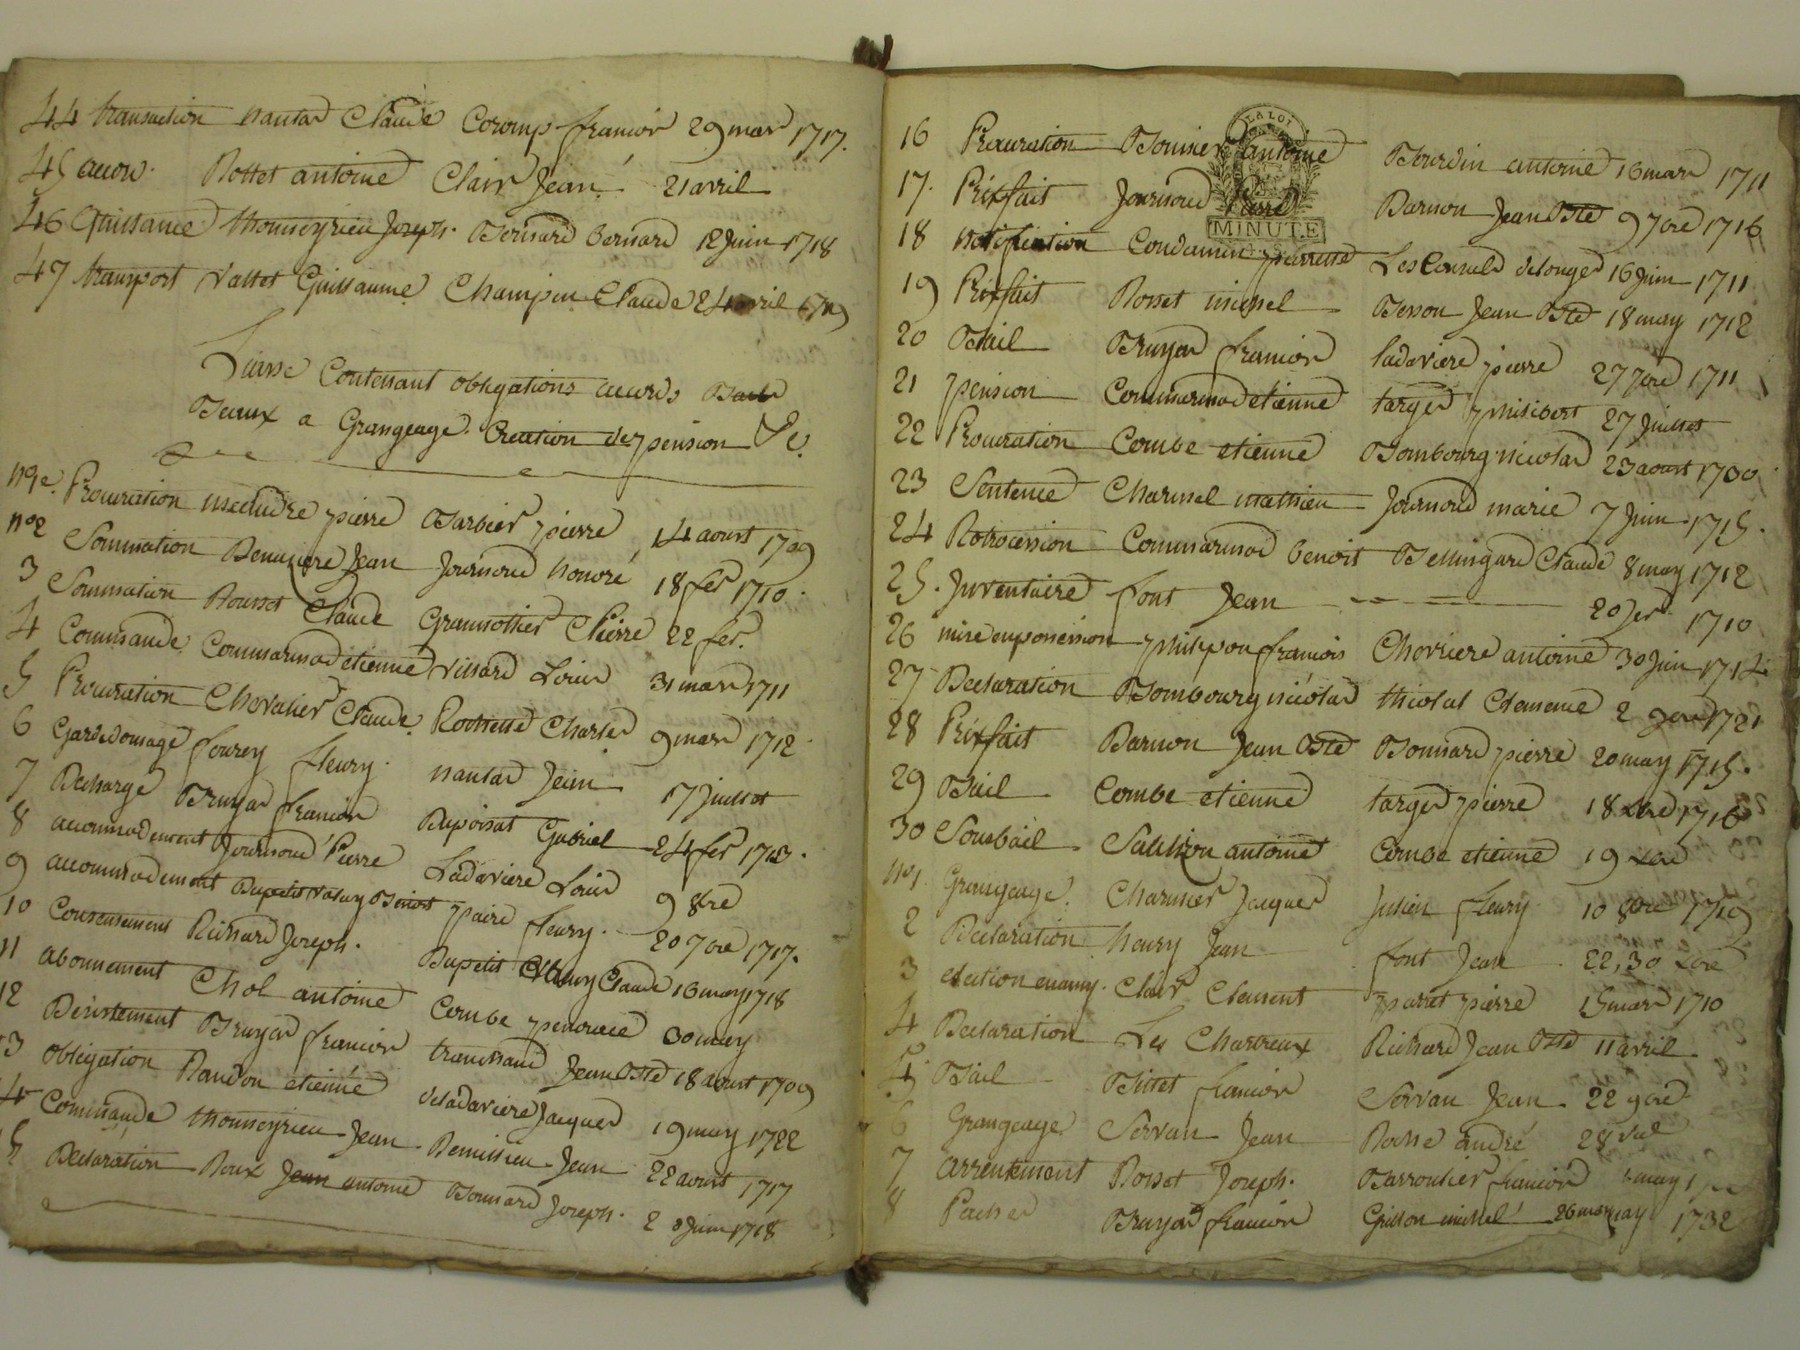 44 transaction nantas Claude Coromp françois 29 mars 1717.
45 accord. Rottet antoine Clair Jean 21 avril
46 Quittance thomeyrieu Joseph. Bernard bernard 12 Juin 1718
47 transport Vattet Guillaume Champin Claude 24 avril
Liasse Contenant obligations accords Baile
Baux a Grangeage. Creation de pension &c.
nº1e. Procuration pierre Barbier pierre 14 aoust 1709
nº2 Sommation Jean Journoud honoré 18 fer 1710.
3 Sommation Rousset Claude Grannottier Pierre 22 fer.
4 Commande Commarmod etienne Villard Louis 31 mars 1711
5 Procuration Chevalier Claude Rochette Charles 9 mars 1712
6 Gardedomage fourey fleury. nantas Jean 17 Juillet
7 Decharge Bruyas françois Dupoisat Gabriel 24 fer 1713.
8 accommodement Journoud Pierre Ladaviere Louis 9 8bre
9 accommodement Dupetit Valuy Benoit paire fleury. 20 7bre 1717.
10 Consentement Richard Joseph. Dupetit Claude 16 may 1718
11 abonnement Chol antoine Combe 30 may
12 Desistement Bruyas françois Jean Bte 18 aoust 1709
13 obligation Randon etienne deladaviere Jacques 19 may 1722
14 Commande thomeyrieu Jean Remilieu Jean 22 aoust 1717
15 Declaration Roux Jean antoine Bonnard Joseph. 2 Juin 1718
LA LOI
MINUTE
16 Procuration Bonnier antoine Bourdin antoine 16 mars 1711
17. Prixfait Journoud Pierre Barnon Jean Bte 9 7bre 1716
18 notification Condamin pierrette Les Consuls de longes 16 Juin 1711
19 Prixfait Rosset michel Besson Jean Bte 18 may 1712
20 Bail Bruyas françois ladaviere pierre 27 7bre 1711
21 pension Commarmod etienne targes philibert 27 Juillet
22 Procuration Combe etienne Bombourg nicolas 23 aoust 1730
23 Sentence Charmel mathieu Journoud marie 7 Juin 1715.
24 Retrocession Commarmod benoit Bellingard Claude 8 may 1712
25. Inventaire font Jean 20 1710
26 mise en possession philipon françois Choriere antoine 30 Juin 1714
27 Declaration Bombourg nicolas thiolat Clemence 2 1721
28 Prixfait Barnon Jean Bte Bonnard pierre 20 may 1715.
29 Bail Combe etienne targes pierre 18 Xbre 1716
30 Sousbail antoine Combe etienne 19 Xbre
nº1. Grangeage. Charmier Jacques Julien fleury 10 8bre 1719
2 Declaration henry Jean font Jean 22, 30 Xbre
3 election en amy. Clair Clement parret pierre 15 mars 1710
4 Declaration Les Chartreux Richard Jean Bte 11 avril
5 Bail Bittet françois Servan Jean 22 9bre
6 Grangeage Servan Jean Roche andré 28
7 arrentement Rosset Joseph. Barroulier françois may
8 Paches Bruyas françois Grillon michel 26 may 1732